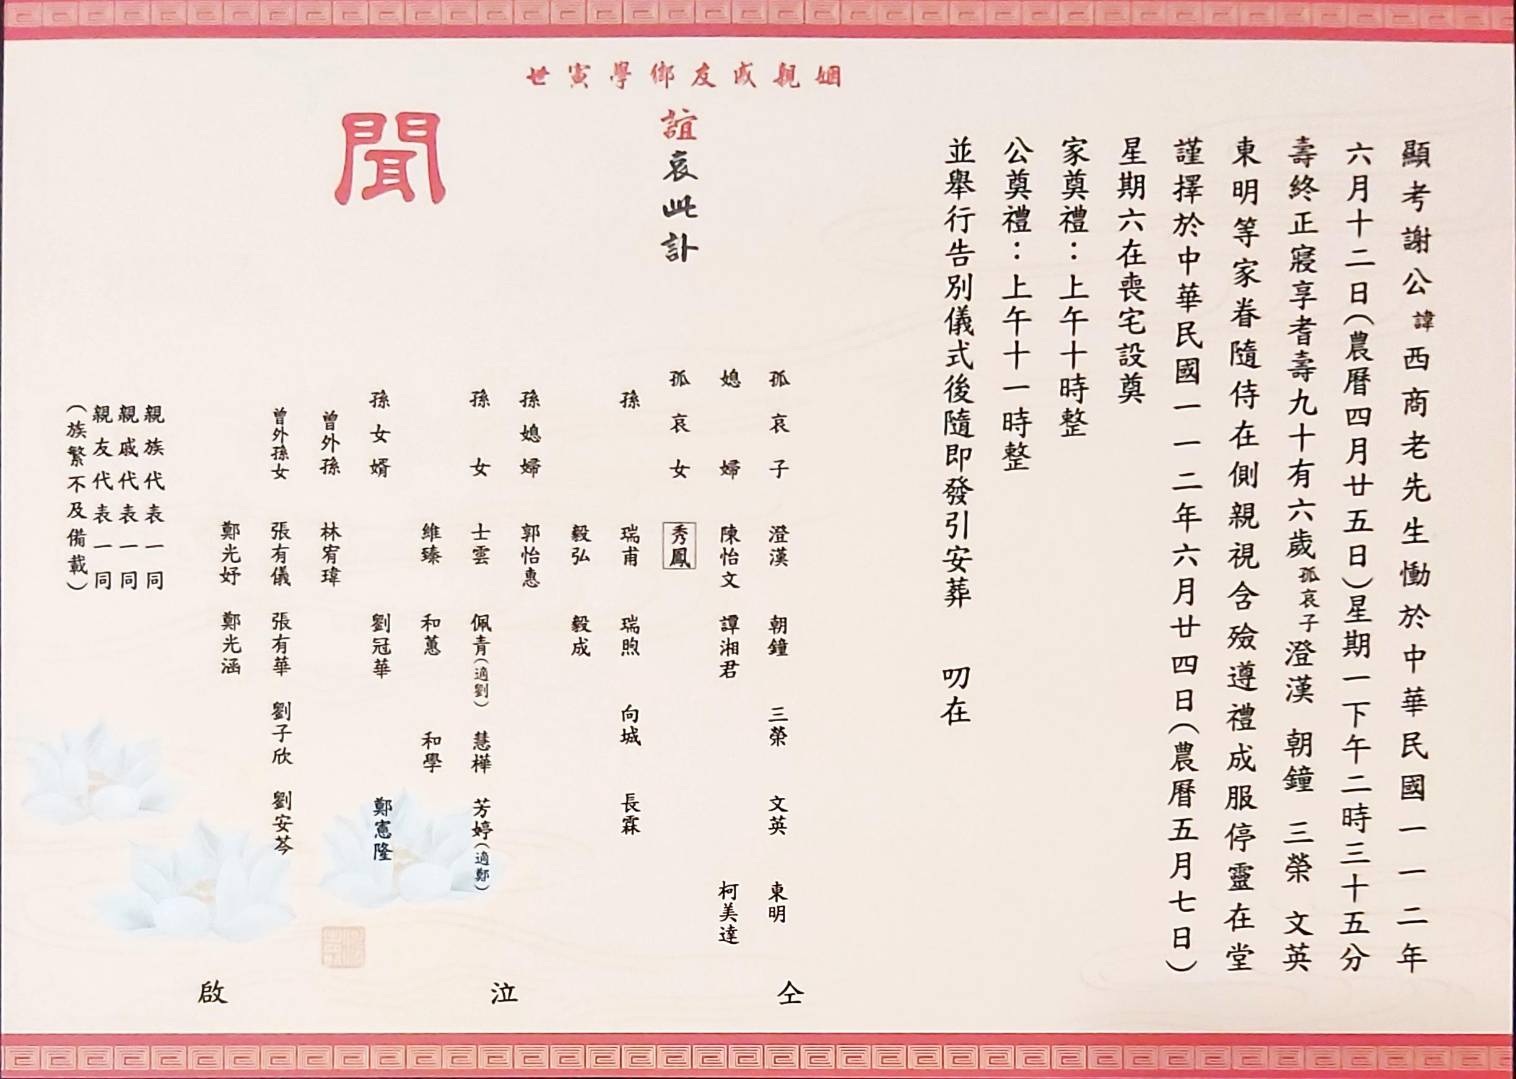 顯考謝公諱西商老先生慟於中華民國一一二年
六月十二日(農曆四月廿五日)星期一下午二時三十五分
壽終正寢享耆壽九十有六歲孤哀子澄漢 朝鐘 三榮 文英
東明等家眷隨侍在側親視含殮遵禮成服停靈在堂
謹擇於中華民國一一二年六月廿四日(農曆五月七日)
星期六在喪宅設奠
家奠禮：上午十時整
公奠禮：上午十一時整
並舉行告別儀式後隨即發引安葬 叨在
姻親戚友鄉學寅世
誼哀此訃
聞
孤哀子 澄漢 朝鐘 三榮 文英 東明
媳婦 陳怡文 譚湘君 柯美達
孤哀女 秀鳳
孫 瑞甫 瑞煦 向城 長霖
毅弘 毅成
孫媳婦 郭怡惠
孫女 士雲 佩青(適劉) 慧樺 芳婷(適鄭)
維臻 和蕙 和學
孫女婿 劉冠華 鄭憲隆
曾外孫 林宥瑋
曾外孫女 張有儀 張有華 劉子欣 劉安芩
鄭光妤 鄭光涵
親族代表一同
親戚代表一同
親友代表一同
(族繁不及備載)
仝 泣 啟